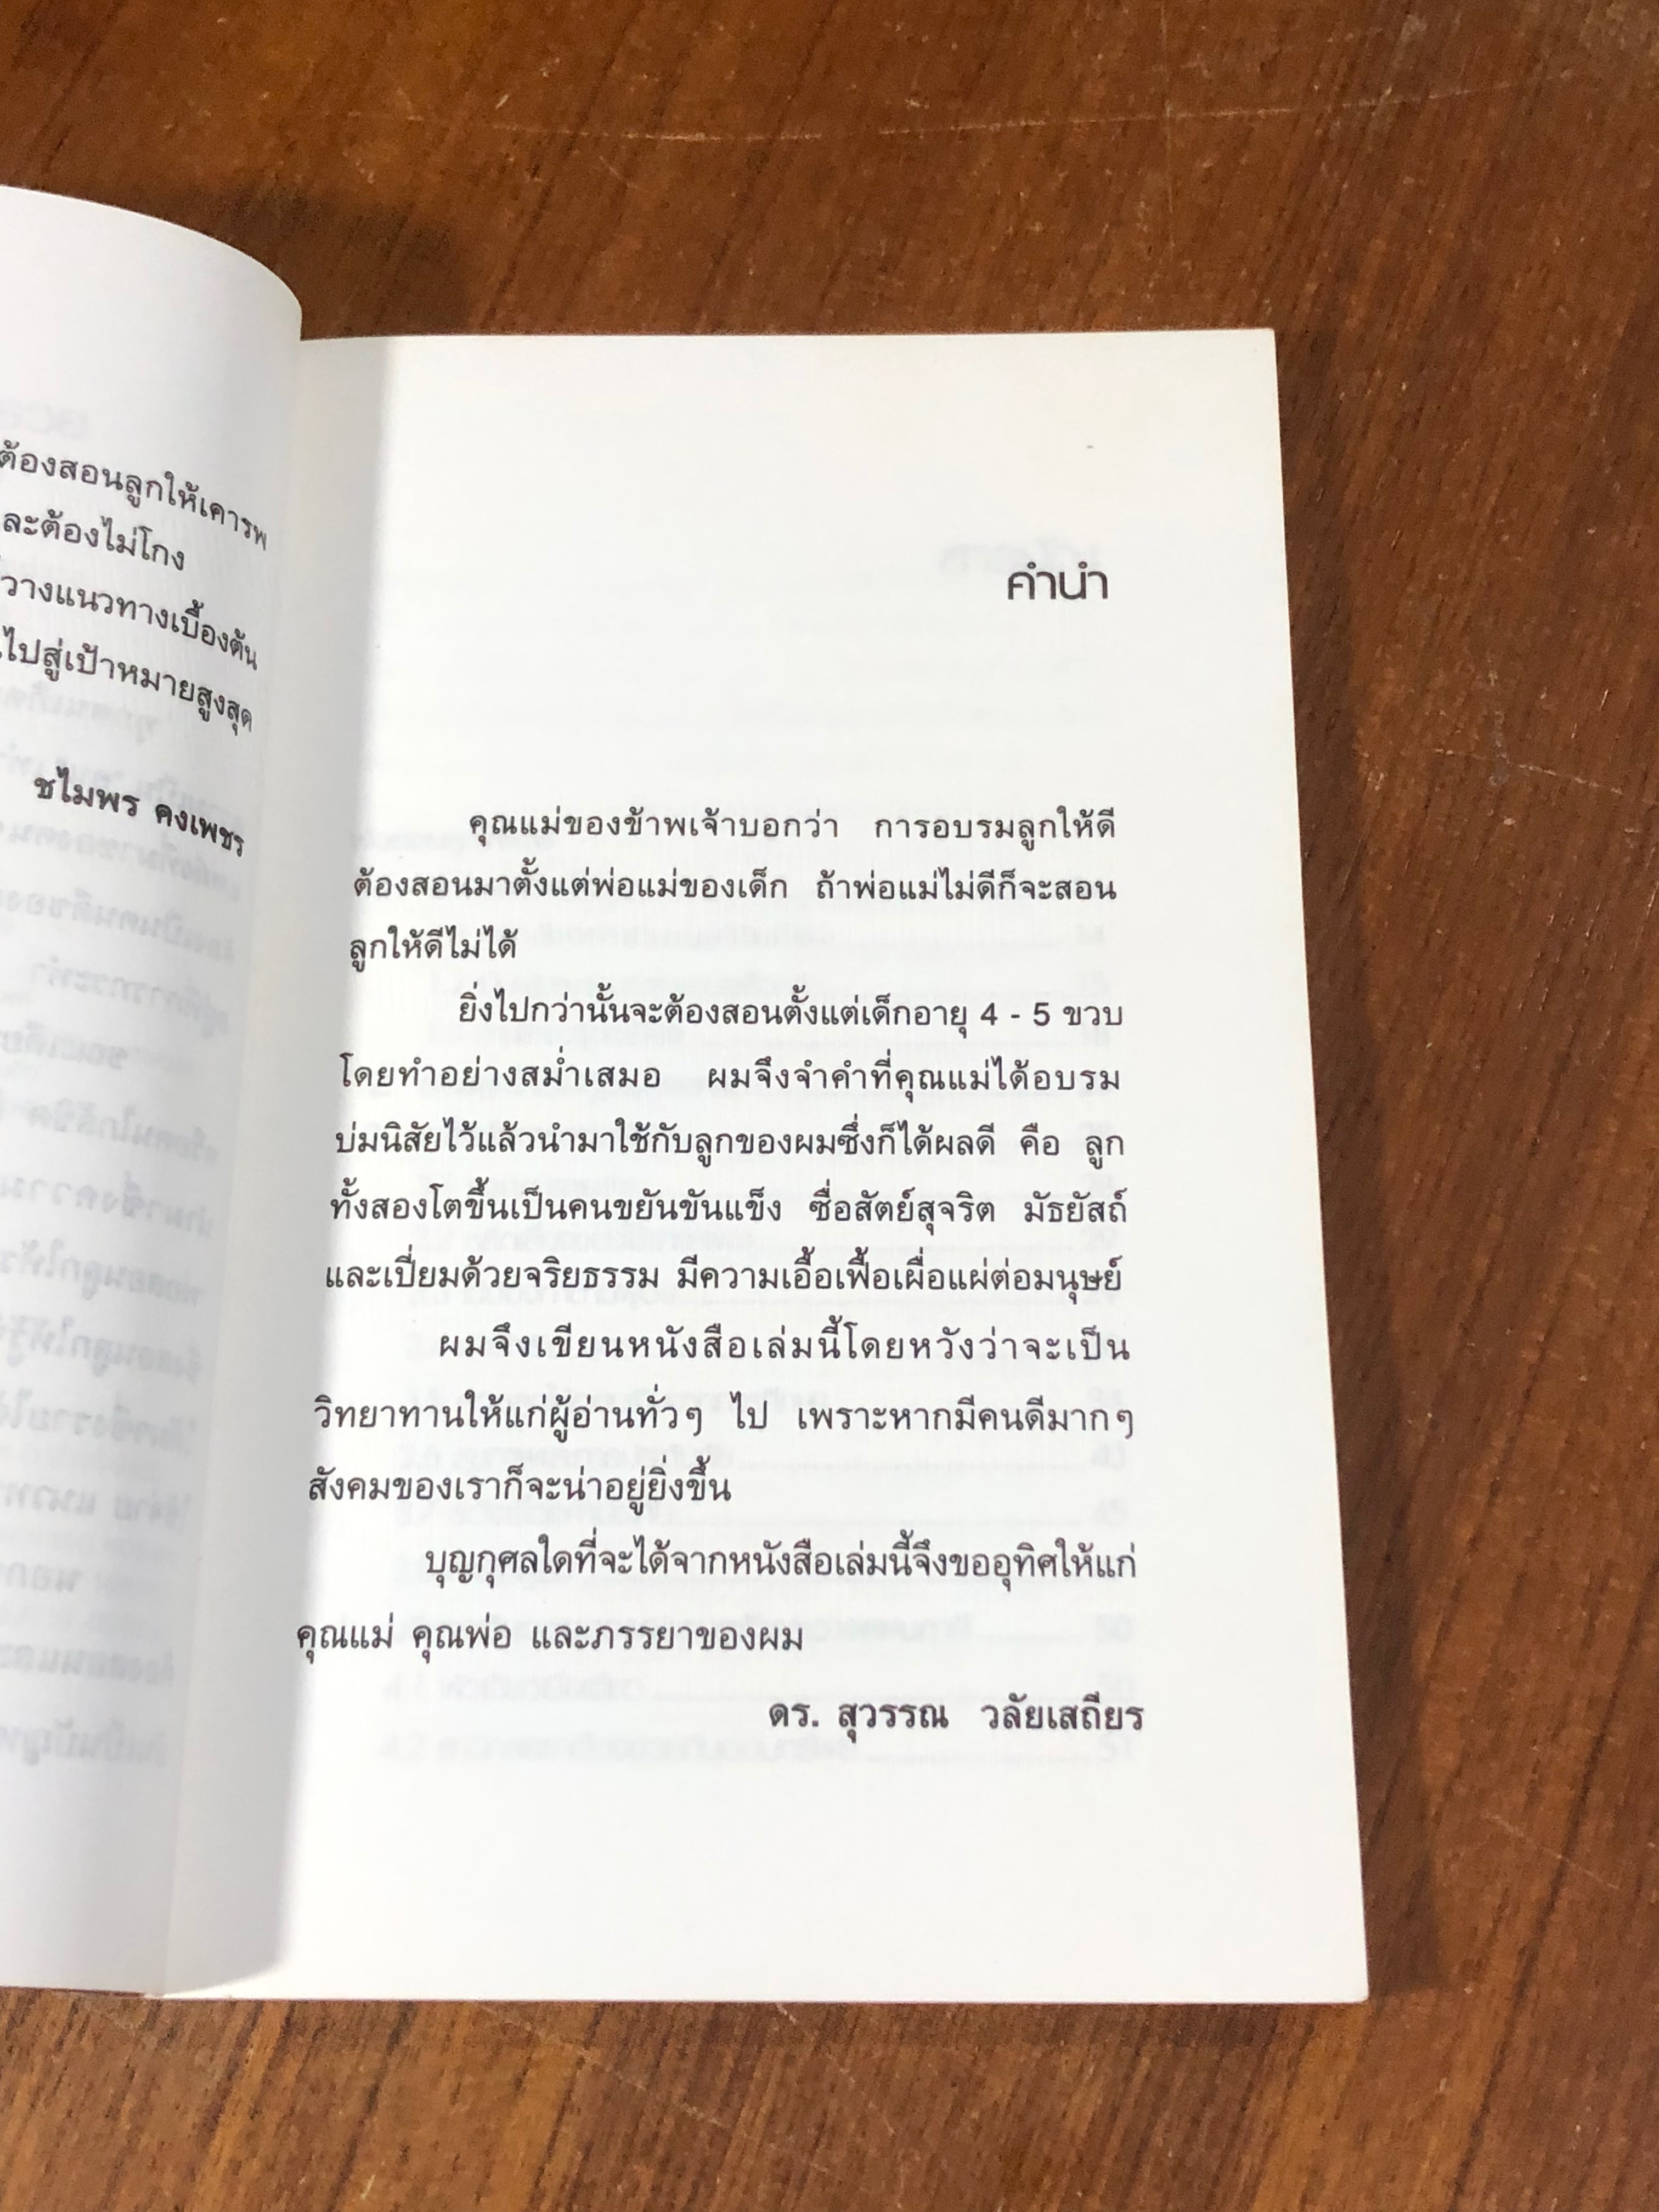 ต้องสอนลูกให้เคารพ
ละต้องไม่โกง
วางแนวทางเบื้องต้น
ไปสู่เป้าหมายสูงสุด
ชไมพร คงเพชร
คำนำ
คุณแม่ของข้าพเจ้าบอกว่า การอบรมลูกให้ดี
ต้องสอนมาตั้งแต่พ่อแม่ของเด็ก ถ้าพ่อแม่ไม่ดีก็จะสอน
ลูกให้ดีไม่ได้
ยิ่งไปกว่านั้นจะต้องสอนตั้งแต่เด็กอายุ 4 - 5 ขวบ
โดยทำอย่างสม่ำเสมอ ผมจึงจำคำที่คุณแม่ได้อบรม
บ่มนิสัยไว้แล้วนำมาใช้กับลูกของผมซึ่งก็ได้ผลดี คือ ลูก
ทั้งสองโตขึ้นเป็นคนขยันขันแข็ง ซื่อสัตย์สุจริต มัธยัสถ์
และเปี่ยมด้วยจริยธรรม มีความเอื้อเฟื้อเผื่อแผ่ต่อมนุษย์
ผมจึงเขียนหนังสือเล่มนี้โดยหวังว่าจะเป็น
วิทยาทานให้แก่ผู้อ่านทั่วๆ ไป เพราะหากมีคนดีมากๆ
สังคมของเราก็จะน่าอยู่ยิ่งขึ้น
บุญกุศลใดที่จะได้จากหนังสือเล่มนี้จึงขออุทิศให้แก่
คุณแม่ คุณพ่อ และภรรยาของผม
ดร. สุวรรณ วลัยเสถียร